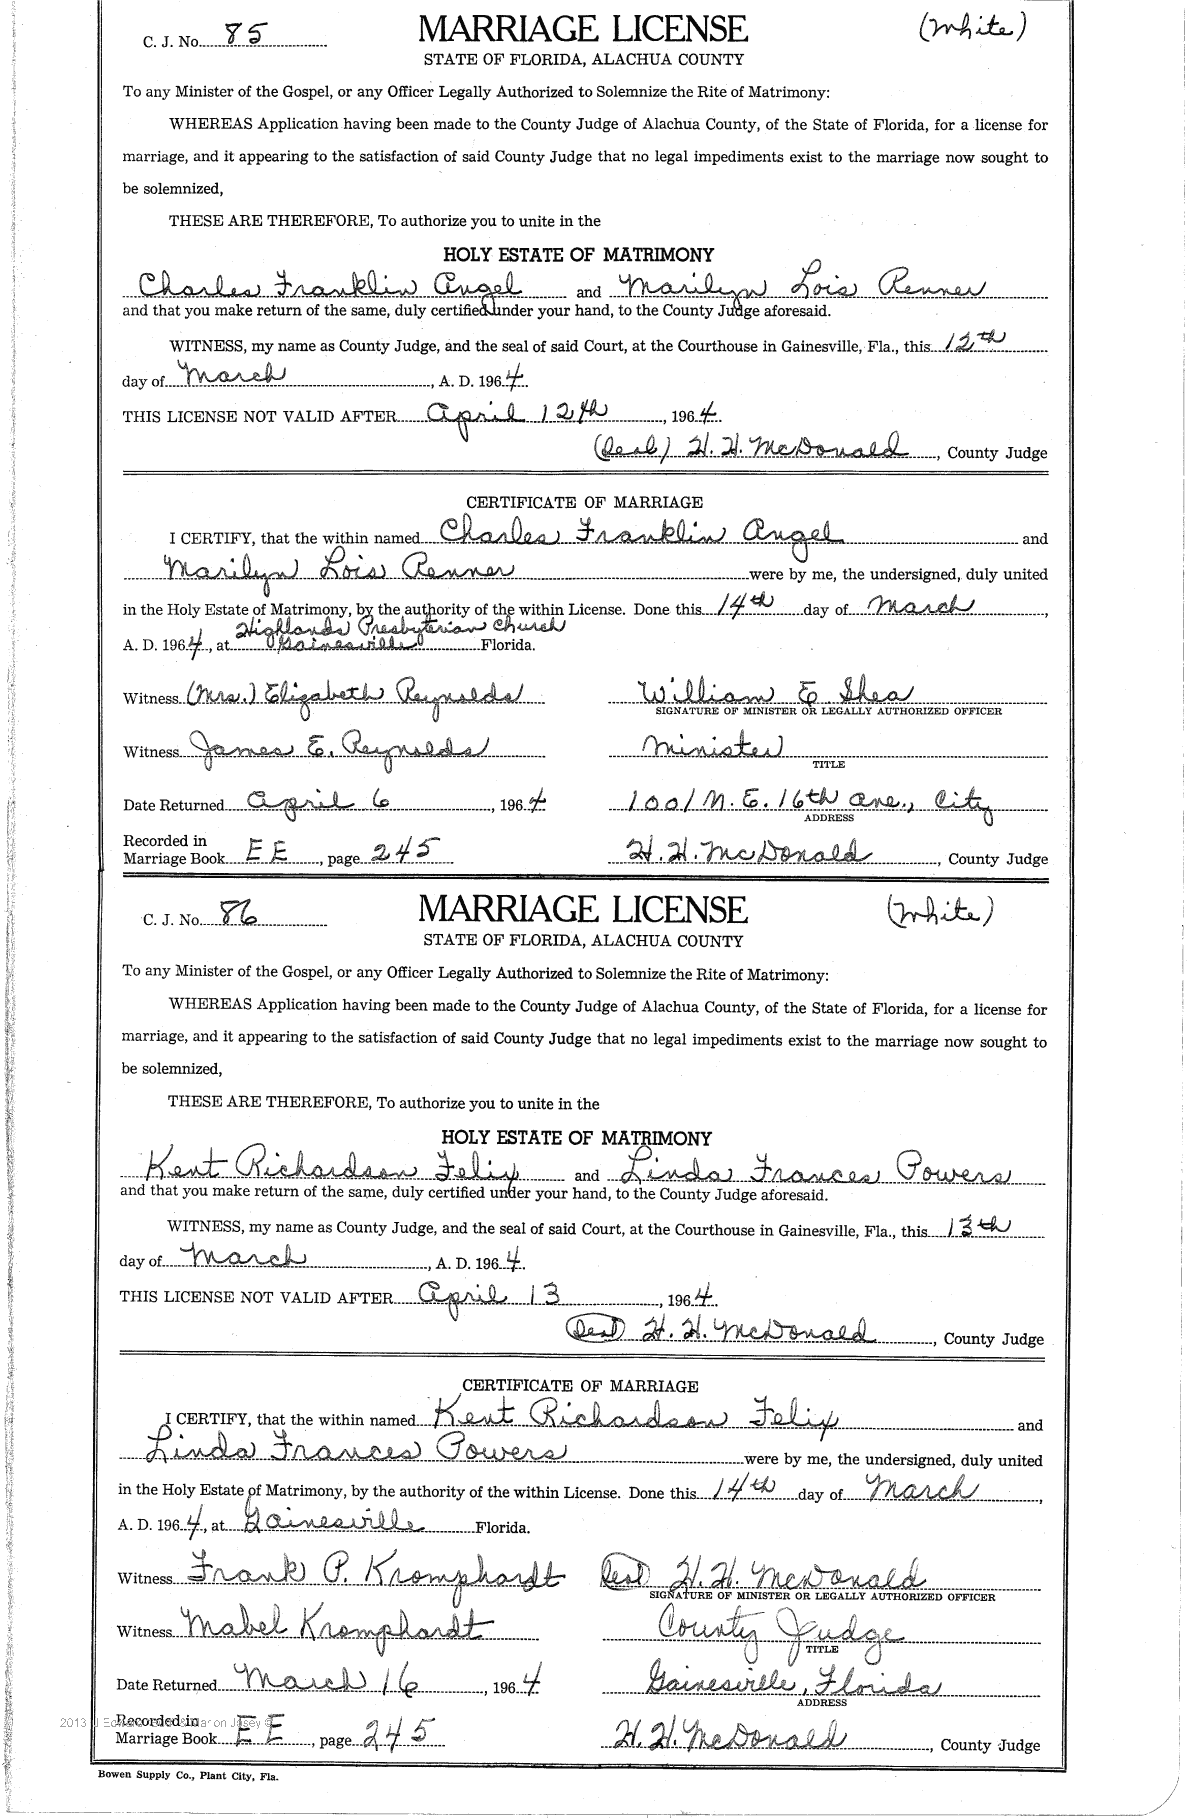 C. J. No. 85 MARRIAGE LICENSE (White)
STATE OF FLORIDA, ALACHUA COUNTY
To any Minister of the Gospel, or any Officer Legally Authorized to Solemnize the Rite of Matrimony:
WHEREAS Application having been made to the County Judge of Alachua County, of the State of Florida, for a license for
marriage, and it appearing to the satisfaction of said County Judge that no legal impediments exist to the marriage now sought to
be solemnized,
THESE ARE THEREFORE, To authorize you to unite in the
HOLY ESTATE OF MATRIMONY
Charles Franklin Angel and Marilyn Lois Renner
and that you make return of the same, duly certified under your hand, to the County Judge aforesaid.
WITNESS, my name as County Judge, and the seal of said Court, at the Courthouse in Gainesville, Fla., this 12th
day of March, A. D. 1964.
THIS LICENSE NOT VALID AFTER April 12th, 1964.
(Seal) H. H. McDonald, County Judge
CERTIFICATE OF MARRIAGE
I CERTIFY, that the within named Charles Franklin Angel and
Marilyn Lois Renner were by me, the undersigned, duly united
in the Holy Estate of Matrimony, by the authority of the within License. Done this 14th day of March,
Highlands Presbyterian Church
A. D. 1964, at Gainesville Florida.
Witness (Mrs.) Elizabeth Reynolds William E. Shea
SIGNATURE OF MINISTER OR LEGALLY AUTHORIZED OFFICER
Witness James E. Reynolds Minister
TITLE
Date Returned April 6, 1964 1001 N. E. 16th Ave., City
ADDRESS
Recorded in
Marriage Book EE, page 245 H. H. McDonald, County Judge
C. J. No. 86 MARRIAGE LICENSE (White)
STATE OF FLORIDA, ALACHUA COUNTY
To any Minister of the Gospel, or any Officer Legally Authorized to Solemnize the Rite of Matrimony:
WHEREAS Application having been made to the County Judge of Alachua County, of the State of Florida, for a license for
marriage, and it appearing to the satisfaction of said County Judge that no legal impediments exist to the marriage now sought to
be solemnized,
THESE ARE THEREFORE, To authorize you to unite in the
HOLY ESTATE OF MATRIMONY
Kent Richardson Felix and Linda Frances Powers
and that you make return of the same, duly certified under your hand, to the County Judge aforesaid.
WITNESS, my name as County Judge, and the seal of said Court, at the Courthouse in Gainesville, Fla., this 13th
day of March, A. D. 1964.
THIS LICENSE NOT VALID AFTER April 13, 1964.
(Seal) H. H. McDonald, County Judge
CERTIFICATE OF MARRIAGE
I CERTIFY, that the within named Kent Richardson Felix and
Linda Frances Powers were by me, the undersigned, duly united
in the Holy Estate of Matrimony, by the authority of the within License. Done this 14th day of March,
A. D. 1964, at Gainesville Florida.
Witness Frank P. Kromphardt (Seal) H. H. McDonald
SIGNATURE OF MINISTER OR LEGALLY AUTHORIZED OFFICER
Witness Mabel Kromphardt County Judge
TITLE
Date Returned March 16, 1964 Gainesville, Florida
ADDRESS
Recorded in
Marriage Book EE, page 245 H. H. McDonald, County Judge
Bowen Supply Co., Plant City, Fla.